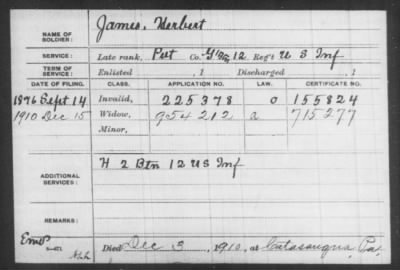 NAME OF SOLDIER: James, Herbert
SERVICE: Late rank, Pvt Co. 12 Reg't U S Inf
TERM OF SERVICE: Enlisted , 1 Discharged , 1
DATE OF FILING. CLASS. APPLICATION NO. LAW. CERTIFICATE NO.
1876 Sept 14 Invalid, 225378 O 155824
1910 Dec 15 Widow, 954212 a 715277
Minor,
ADDITIONAL SERVICES: H 2 Btn 12 U S Inf
REMARKS:
Died Dec 3, 1910, at Catasauqua, Pa.